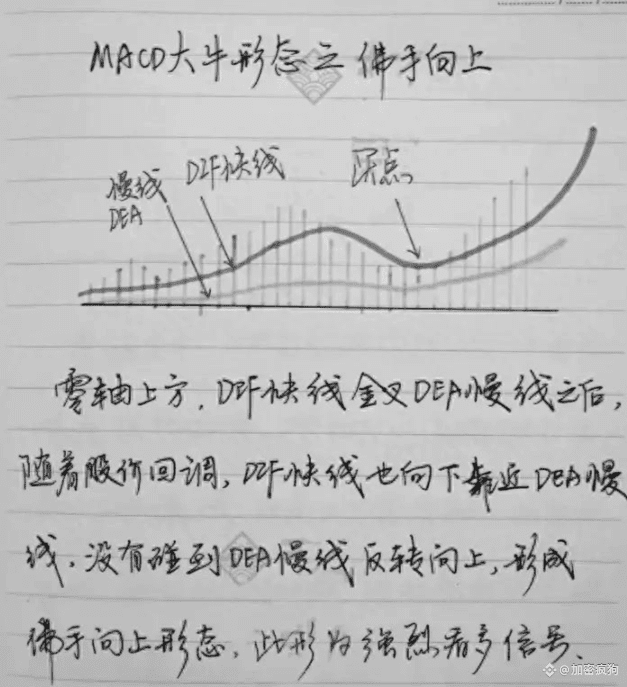 MACD大牛形态之佛手向上
慢线
DEA
DIF快线
买点
零轴上方，DIF快线金叉DEA慢线之后，
随着股价回调，DIF快线也向下靠近DEA慢
线，没有碰到DEA慢线反转向上，形成
佛手向上形态，此形为强烈看多信号。
@加密疯狗